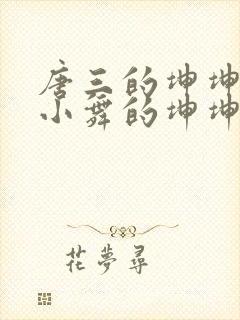 唐三的坤坤
小舞的坤坤
花夢尋